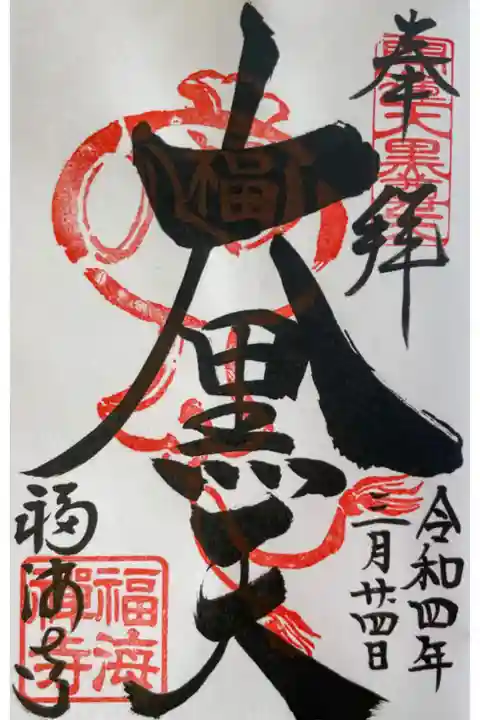 奉拝
令和四年
三月廿四日
大黒天
福
福海寺
福海
禅寺